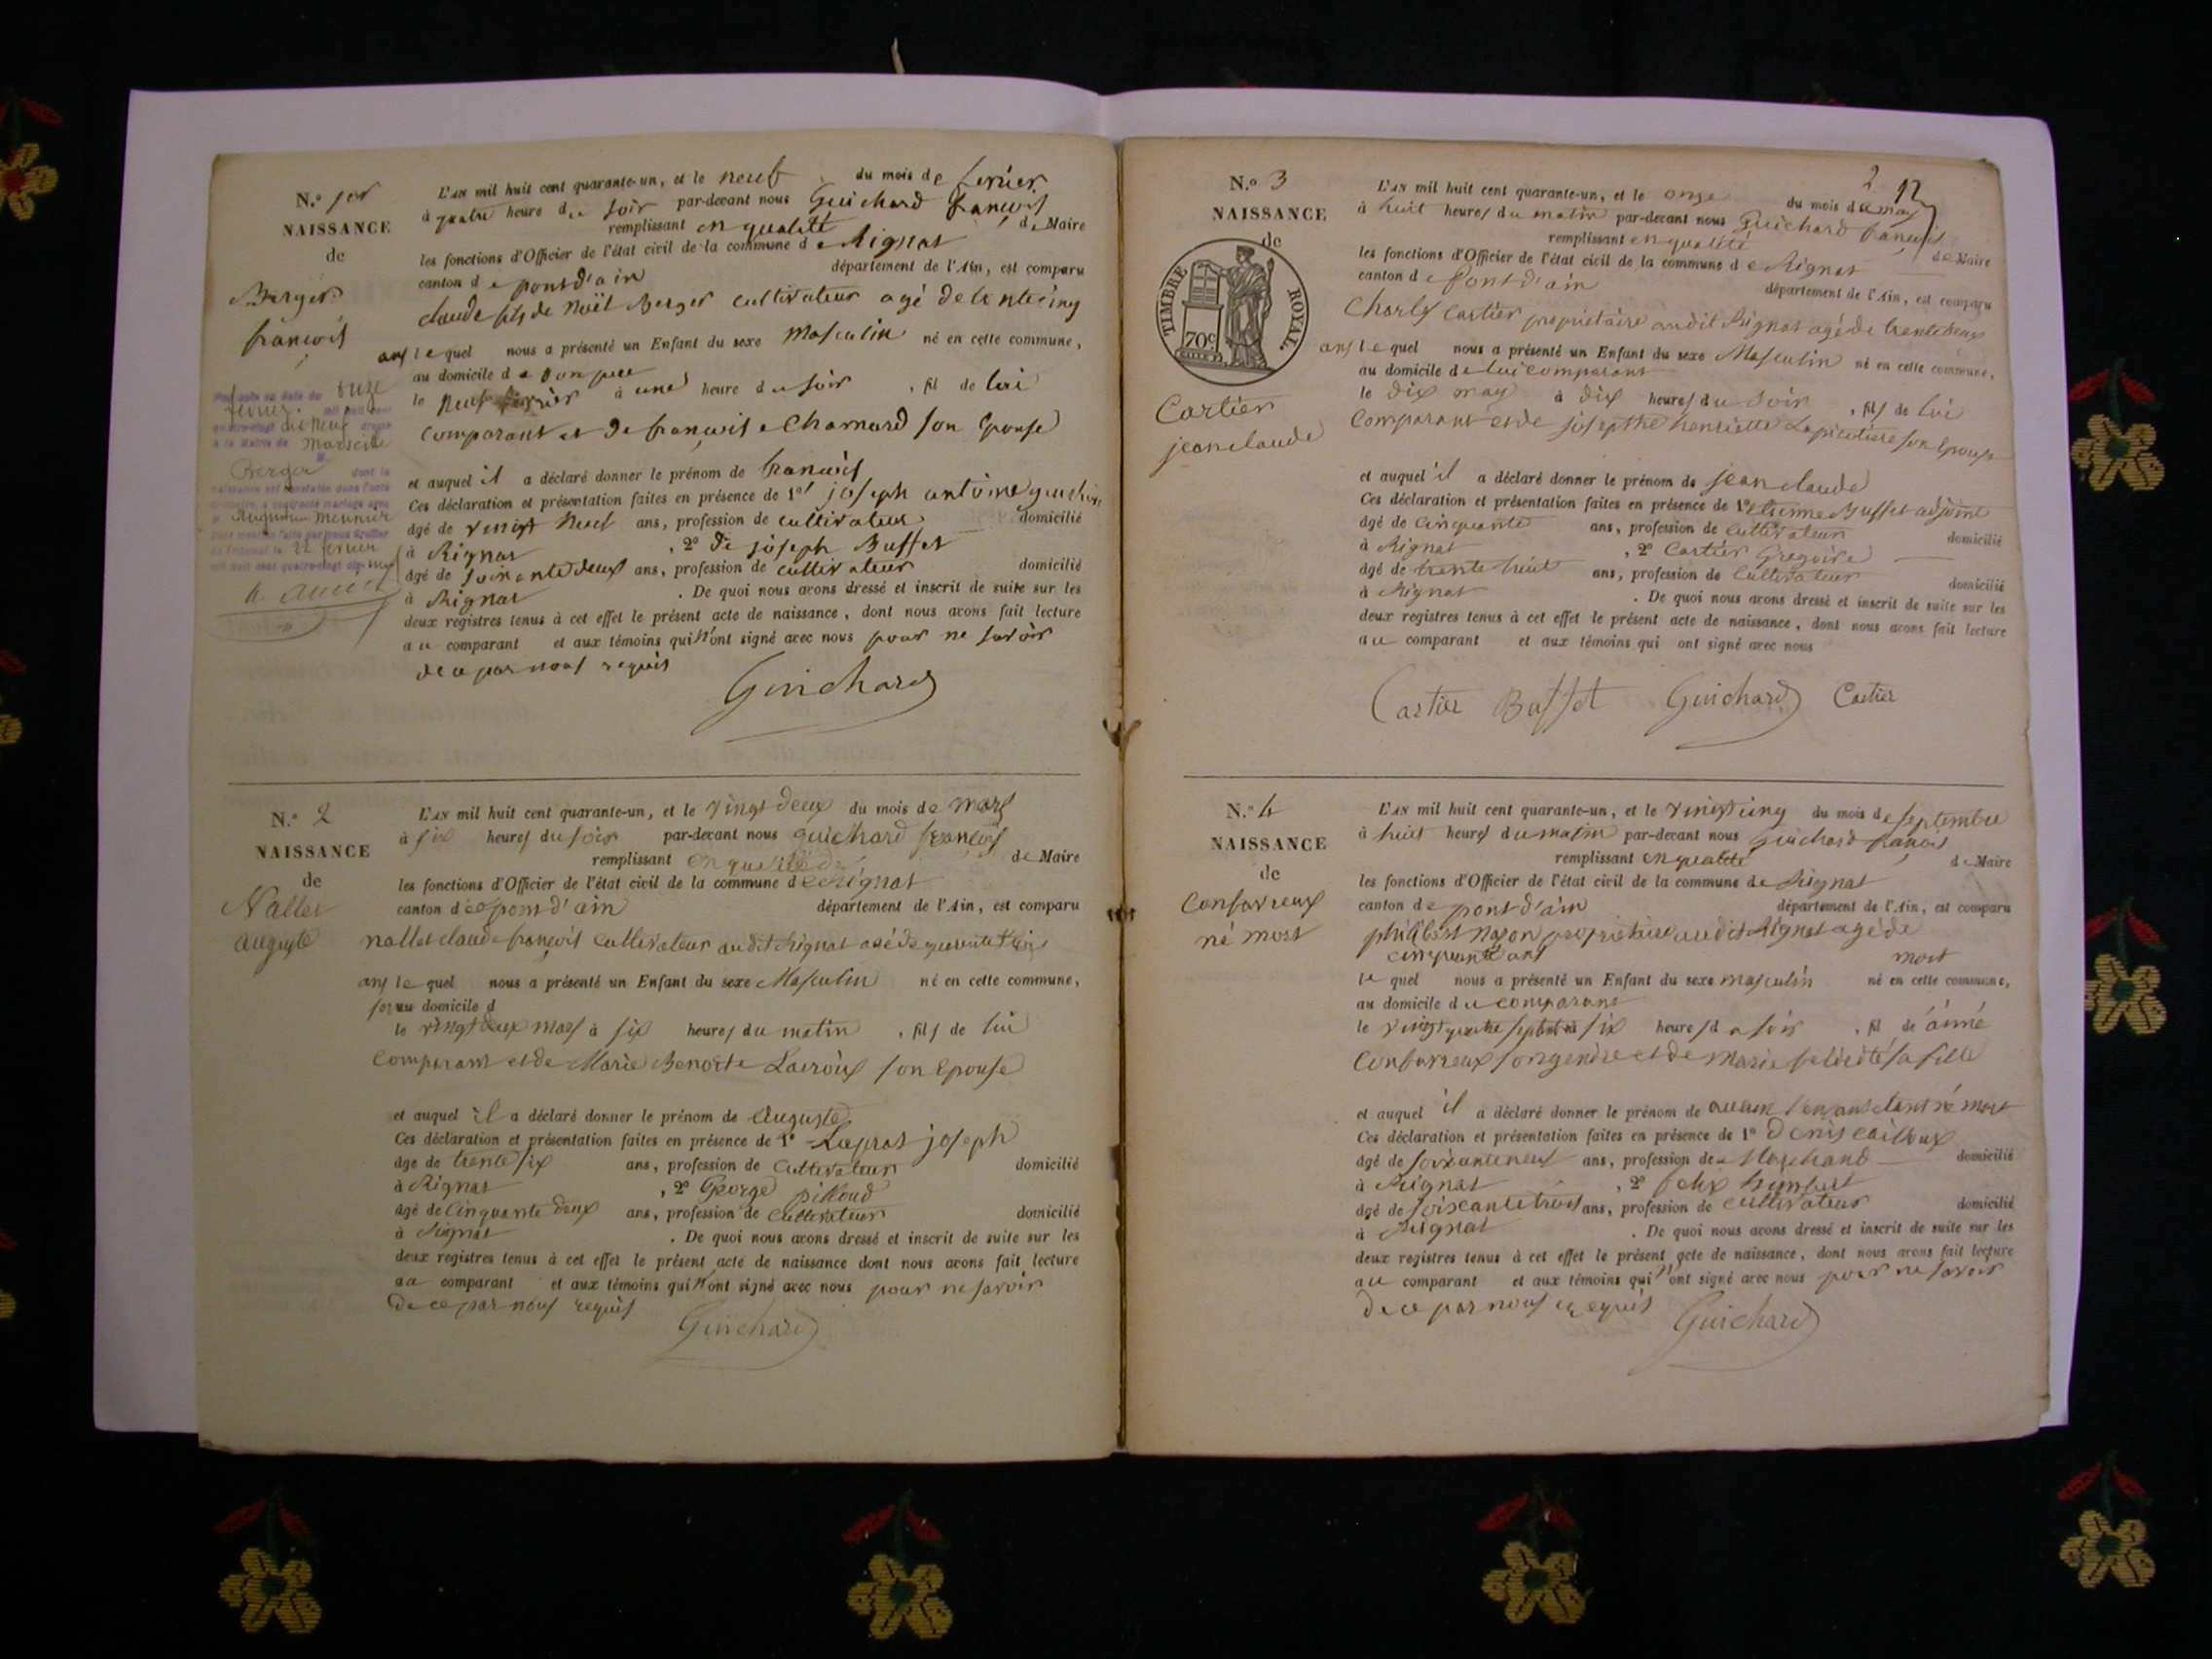 N.o 1er
NAISSANCE
de
Berger
françois
L'AN mil huit cent quarante-un, et le neuf du mois de fevrier
à quatre heure du soir par-devant nous Guichard françois
remplissant en qualité de Maire
les fonctions d'Officier de l'état civil de la commune de Rignat
canton de pont d'ain département de l'Ain, est comparu
claude fils de Noël Berger cultivateur agé de trente cinq
ans le quel nous a présenté un Enfant du sexe Masculin né en cette commune,
au domicile de son pere
le neuf fevrier à une heure du soir , fil de lui
comparant et de françoise Charnard son Epouse
et auquel il a déclaré donner le prénom de françois
Ces déclaration et présentation faites en présence de 1° joseph antoine
âgé de vingt neuf ans, profession de cultivateur domicilié
à Rignat , 2° de joseph Buffet
âgé de soixante deux ans, profession de cultivateur domicilié
à Rignat . De quoi nous avons dressé et inscrit de suite sur les
deux registres tenus à cet effet le présent acte de naissance, dont nous avons fait lecture
au comparant et aux témoins qui n'ont signé avec nous pour ne savoir
de ce par nous requis
Guichard
onze
fevrier
dix neuf
Marseille
Berger
Meunier
22 fevrier
N.o 2
NAISSANCE
de
Nallet
auguste
L'AN mil huit cent quarante-un, et le vingt deux du mois de mars
à six heures du soir par-devant nous guichard françois
remplissant en qualité de Maire
les fonctions d'Officier de l'état civil de la commune de Rignat
canton de pont d'ain département de l'Ain, est comparu
nallet claude françois cultivateur audit Rignat agé de quarante
ans le quel nous a présenté un Enfant du sexe Masculin né en cette commune,
au domicile d
le vingt deux mars à six heures du matin , fils de lui
comparant et de Marie Benoite Lacroix son Epouse
et auquel il a déclaré donner le prénom de Auguste
Ces déclaration et présentation faites en présence de 1° Laprat joseph
âgé de trente six ans, profession de cultivateur domicilié
à Rignat , 2° George pilloud
âgé de Cinquante deux ans, profession de cultivateur domicilié
à Rignat . De quoi nous avons dressé et inscrit de suite sur les
deux registres tenus à cet effet le présent acte de naissance dont nous avons fait lecture
au comparant et aux témoins qui n'ont signé avec nous pour ne savoir
de ce par nous requis
Guichard
2
12
N.o 3
NAISSANCE
de
TIMBRE ROYAL.
70c
Cartier
jean claude
L'AN mil huit cent quarante-un, et le onze du mois de may
à huit heures du matin par-devant nous Guichard françois
remplissant en qualité de Maire
les fonctions d'Officier de l'état civil de la commune de Rignat
canton de Pont d'ain département de l'Ain, est comparu
Charles Cartier proprietaire audit Rignat agé de trente deux
ans le quel nous a présenté un Enfant du sexe Masculin né en cette commune,
au domicile de lui comparant
le dix may à dix heures du soir , fils de lui
Comparant et de josepthe henriette son Epouse
et auquel il a déclaré donner le prénom de jean claude
Ces déclaration et présentation faites en présence de 1° Etienne Buffet adjoint
âgé de cinquante ans, profession de Cultivateur domicilié
à Rignat , 2° Cartier Gregoire
âgé de trente huit ans, profession de Cultivateur domicilié
à Rignat . De quoi nous avons dressé et inscrit de suite sur les
deux registres tenus à cet effet le présent acte de naissance, dont nous avons fait lecture
au comparant et aux témoins qui ont signé avec nous
Cartier Buffet Guichard Cartier
N.o 4
NAISSANCE
de
Confavreux
né mort
L'AN mil huit cent quarante-un, et le vingt cinq du mois de septembre
à huit heures du matin par-devant nous Guichard françois
remplissant en qualité de Maire
les fonctions d'Officier de l'état civil de la commune de Rignat
canton de pont d'ain département de l'Ain, est comparu
philibert proprietaire audit Rignat agé de
cinquante ans mort
le quel nous a présenté un Enfant du sexe masculin né en cette commune,
au domicile du comparant
le vingt quatre septembre à six heures du soir , fil de aimé
Confavreux son gendre et de Marie felicité sa fille
et auquel il a déclaré donner le prénom de aucun l'enfant étant né mort
Ces déclaration et présentation faites en présence de 1° Denis cailloux
âgé de soixante neuf ans, profession de Marchand domicilié
à Rignat , 2° felix humbert
âgé de soixante trois ans, profession de cultivateur domicilié
à Rignat . De quoi nous avons dressé et inscrit de suite sur les
deux registres tenus à cet effet le présent acte de naissance, dont nous avons fait lecture
au comparant et aux témoins qui n'ont signé avec nous pour ne savoir
de ce par nous requis
Guichard